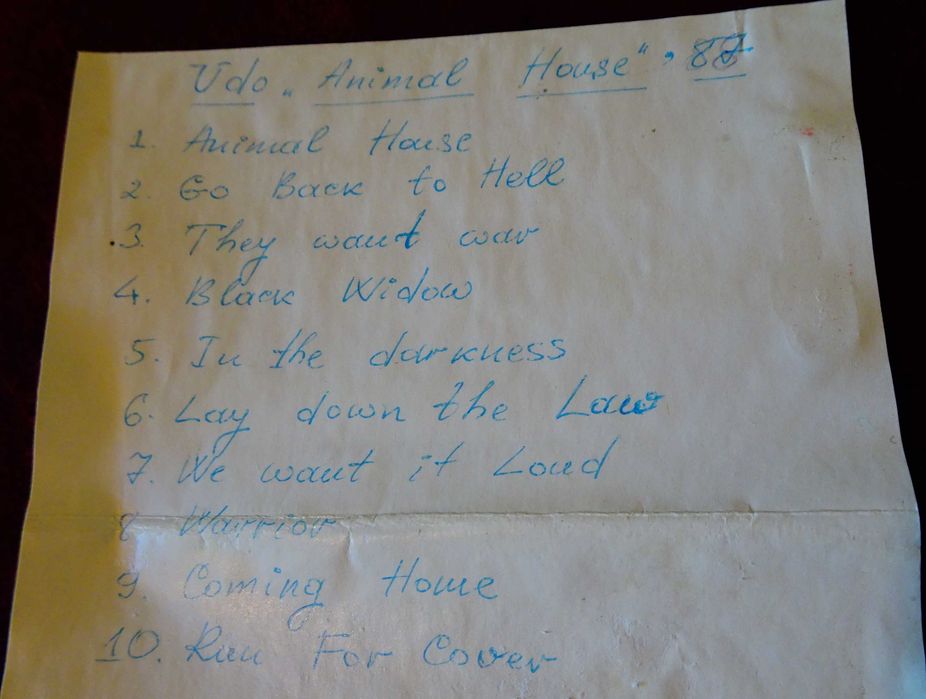 Udo „Animal House" • 87
1. Animal House
2. Go Back to Hell
3. They want war
4. Black Widow
5. In the darkness
6. Lay down the Law
7. We want it Loud
8 Warrior
9. Coming Home
10. Run For Cover